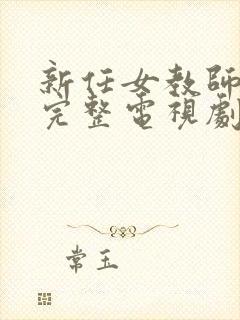 新任女教師
完整電視劇
常玉